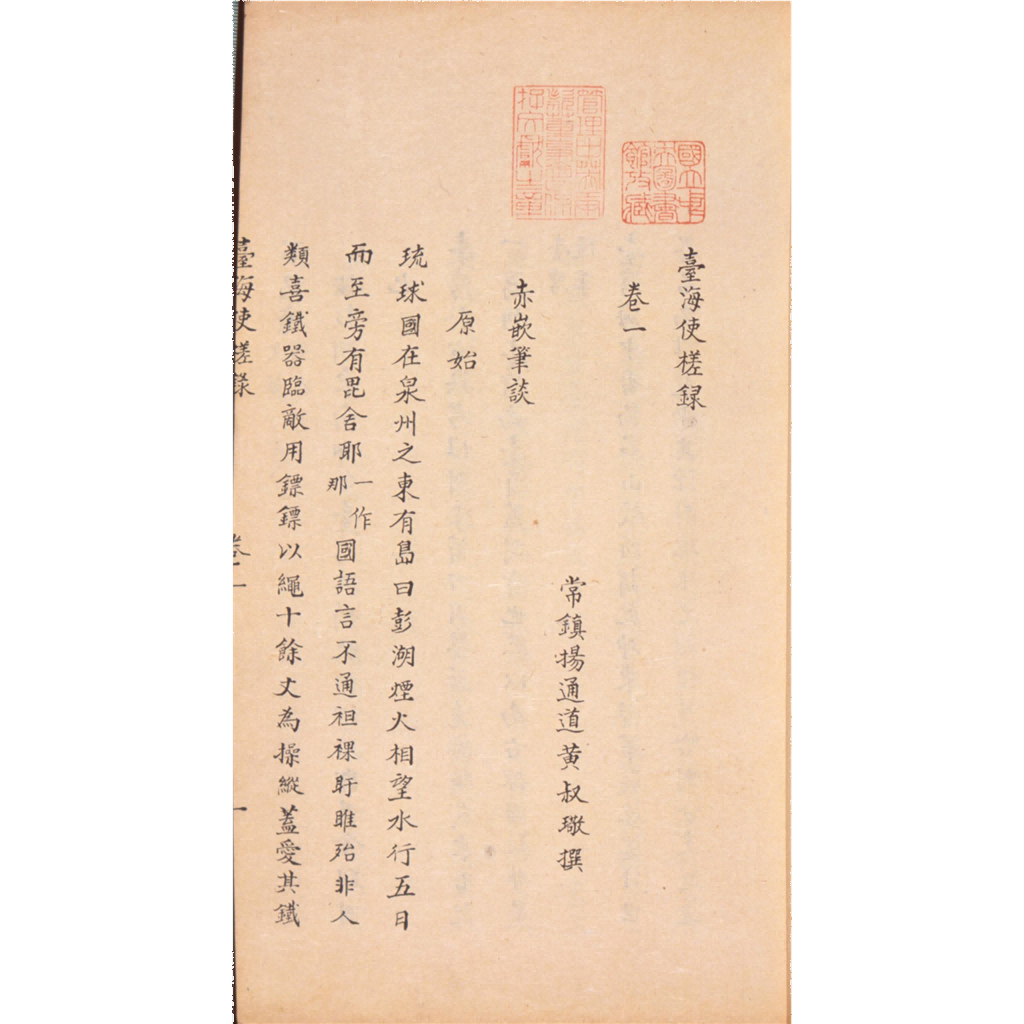 國立中央圖書館收藏
管理中英庚款董事會保存文獻之章
臺海使槎録
卷一
常鎮揚通道黄叔璥撰
赤嵌筆談
原始
琉球國在泉州之東有島曰彭湖煙火相望水行五日
而至旁有毘舍耶一作那國語言不通袒裸盱睢殆非人
類喜鐵器臨敵用鏢鏢以繩十餘丈為操縱蓋愛其鐵
臺海使槎録
卷一
一